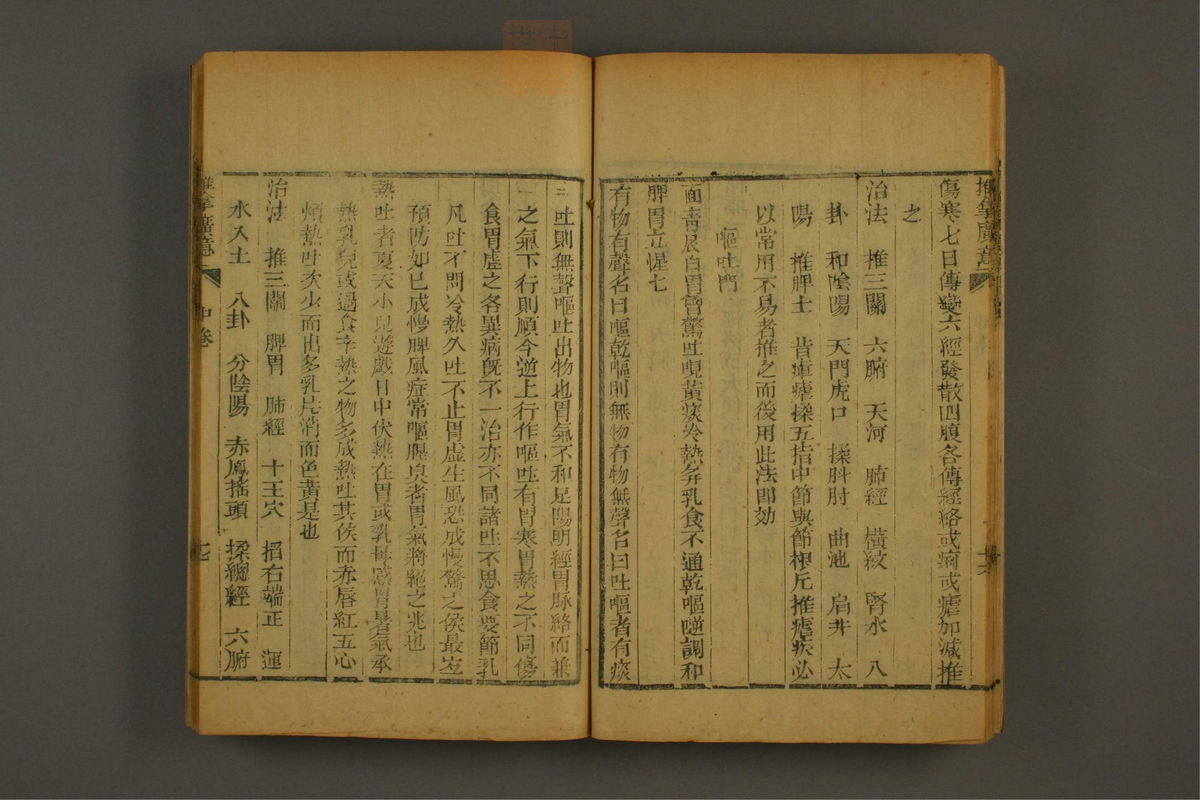 推拿廣意
傷寒七日傳變六經發散四腹各傳經絡或痢或瘧加減推
之
治法 推三關 六腑 天河 肺經 橫紋 腎水 八
卦 和陰陽 天門虎口 揉㪷肘 曲池 肩井 太
陽 推脾土 背瘧瘧揉五指中節與節根凡推瘧疾必
以常用不易者推之而後用此法即効
嘔吐門
面青唇白胃曾驚吐哯黃痰冷熱弁乳食不通乾嘔噦調和
脾胃立惺七
有物有聲名曰嘔乾嘔則無物有物無聲名曰吐嘔者有痰
吐則無聲嘔吐出物也胃氣不和足陽明經胃脉絡而兼
之氣下行則順今逆上行作嘔吐有胃寒胃熱之不同傷
食胃虛之各異病旣不一治亦不同諸吐不思食要節乳
凡吐不問冷熱久吐不止胃虛生風恐成慢驚之侯最宜
預防如已成慢脾風症常嘔腥臭者胃氣將絕之兆也
熱吐者夏天小兒遊戲日中伏熱在胃或乳母感冒暑氣承
熱乳兒或過食辛熱之物多成熱吐其侯面赤唇紅五心
煩熱吐次少而出多乳片消而色黃是也
治法 推三關 脾胃 肺經 十王穴 掐右端正 運
水入土 八卦 分陰陽 赤鳳搖頭 揉總經 六腑
推拿廣意 中卷